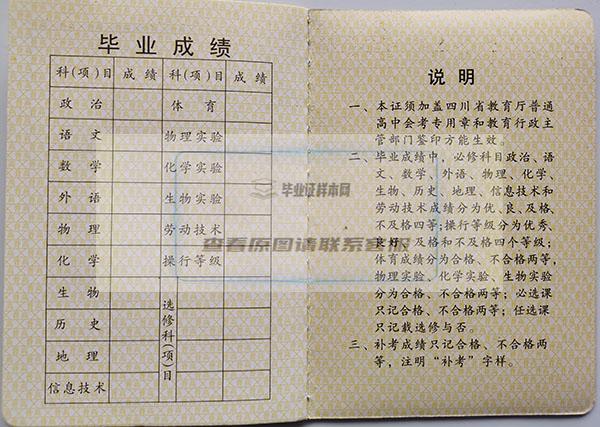 毕业成绩
科(项)目 成绩 科(项)目 成绩
政治 体育
语文 物理实验
数学 化学实验
外语 生物实验
物理 劳动技术
化学 操行等级
生物
历史
地理
信息技术
选修科(项)目
毕业证样本网
查看原图请联系客服
说明
一、本证须加盖四川省教育厅普通
高中会考专用章和教育行政主
管部门签印方能生效。
二、毕业成绩中，必修科目政治、语
文、数学、外语、物理、化学、
生物、历史、地理、信息技术和
劳动技术成绩分为优、良、及格、
不及格四等;操行等级分为优秀、
良好、及格和不及格四个等级;
体育成绩分为合格、不合格两等，
物理实验、化学实验、生物实验
分为合格、不合格两等；必选课
只记合格、不合格两等；任选课
只记载选修与否。
三、补考成绩只记合格、不合格两
等，注明“补考”字样。